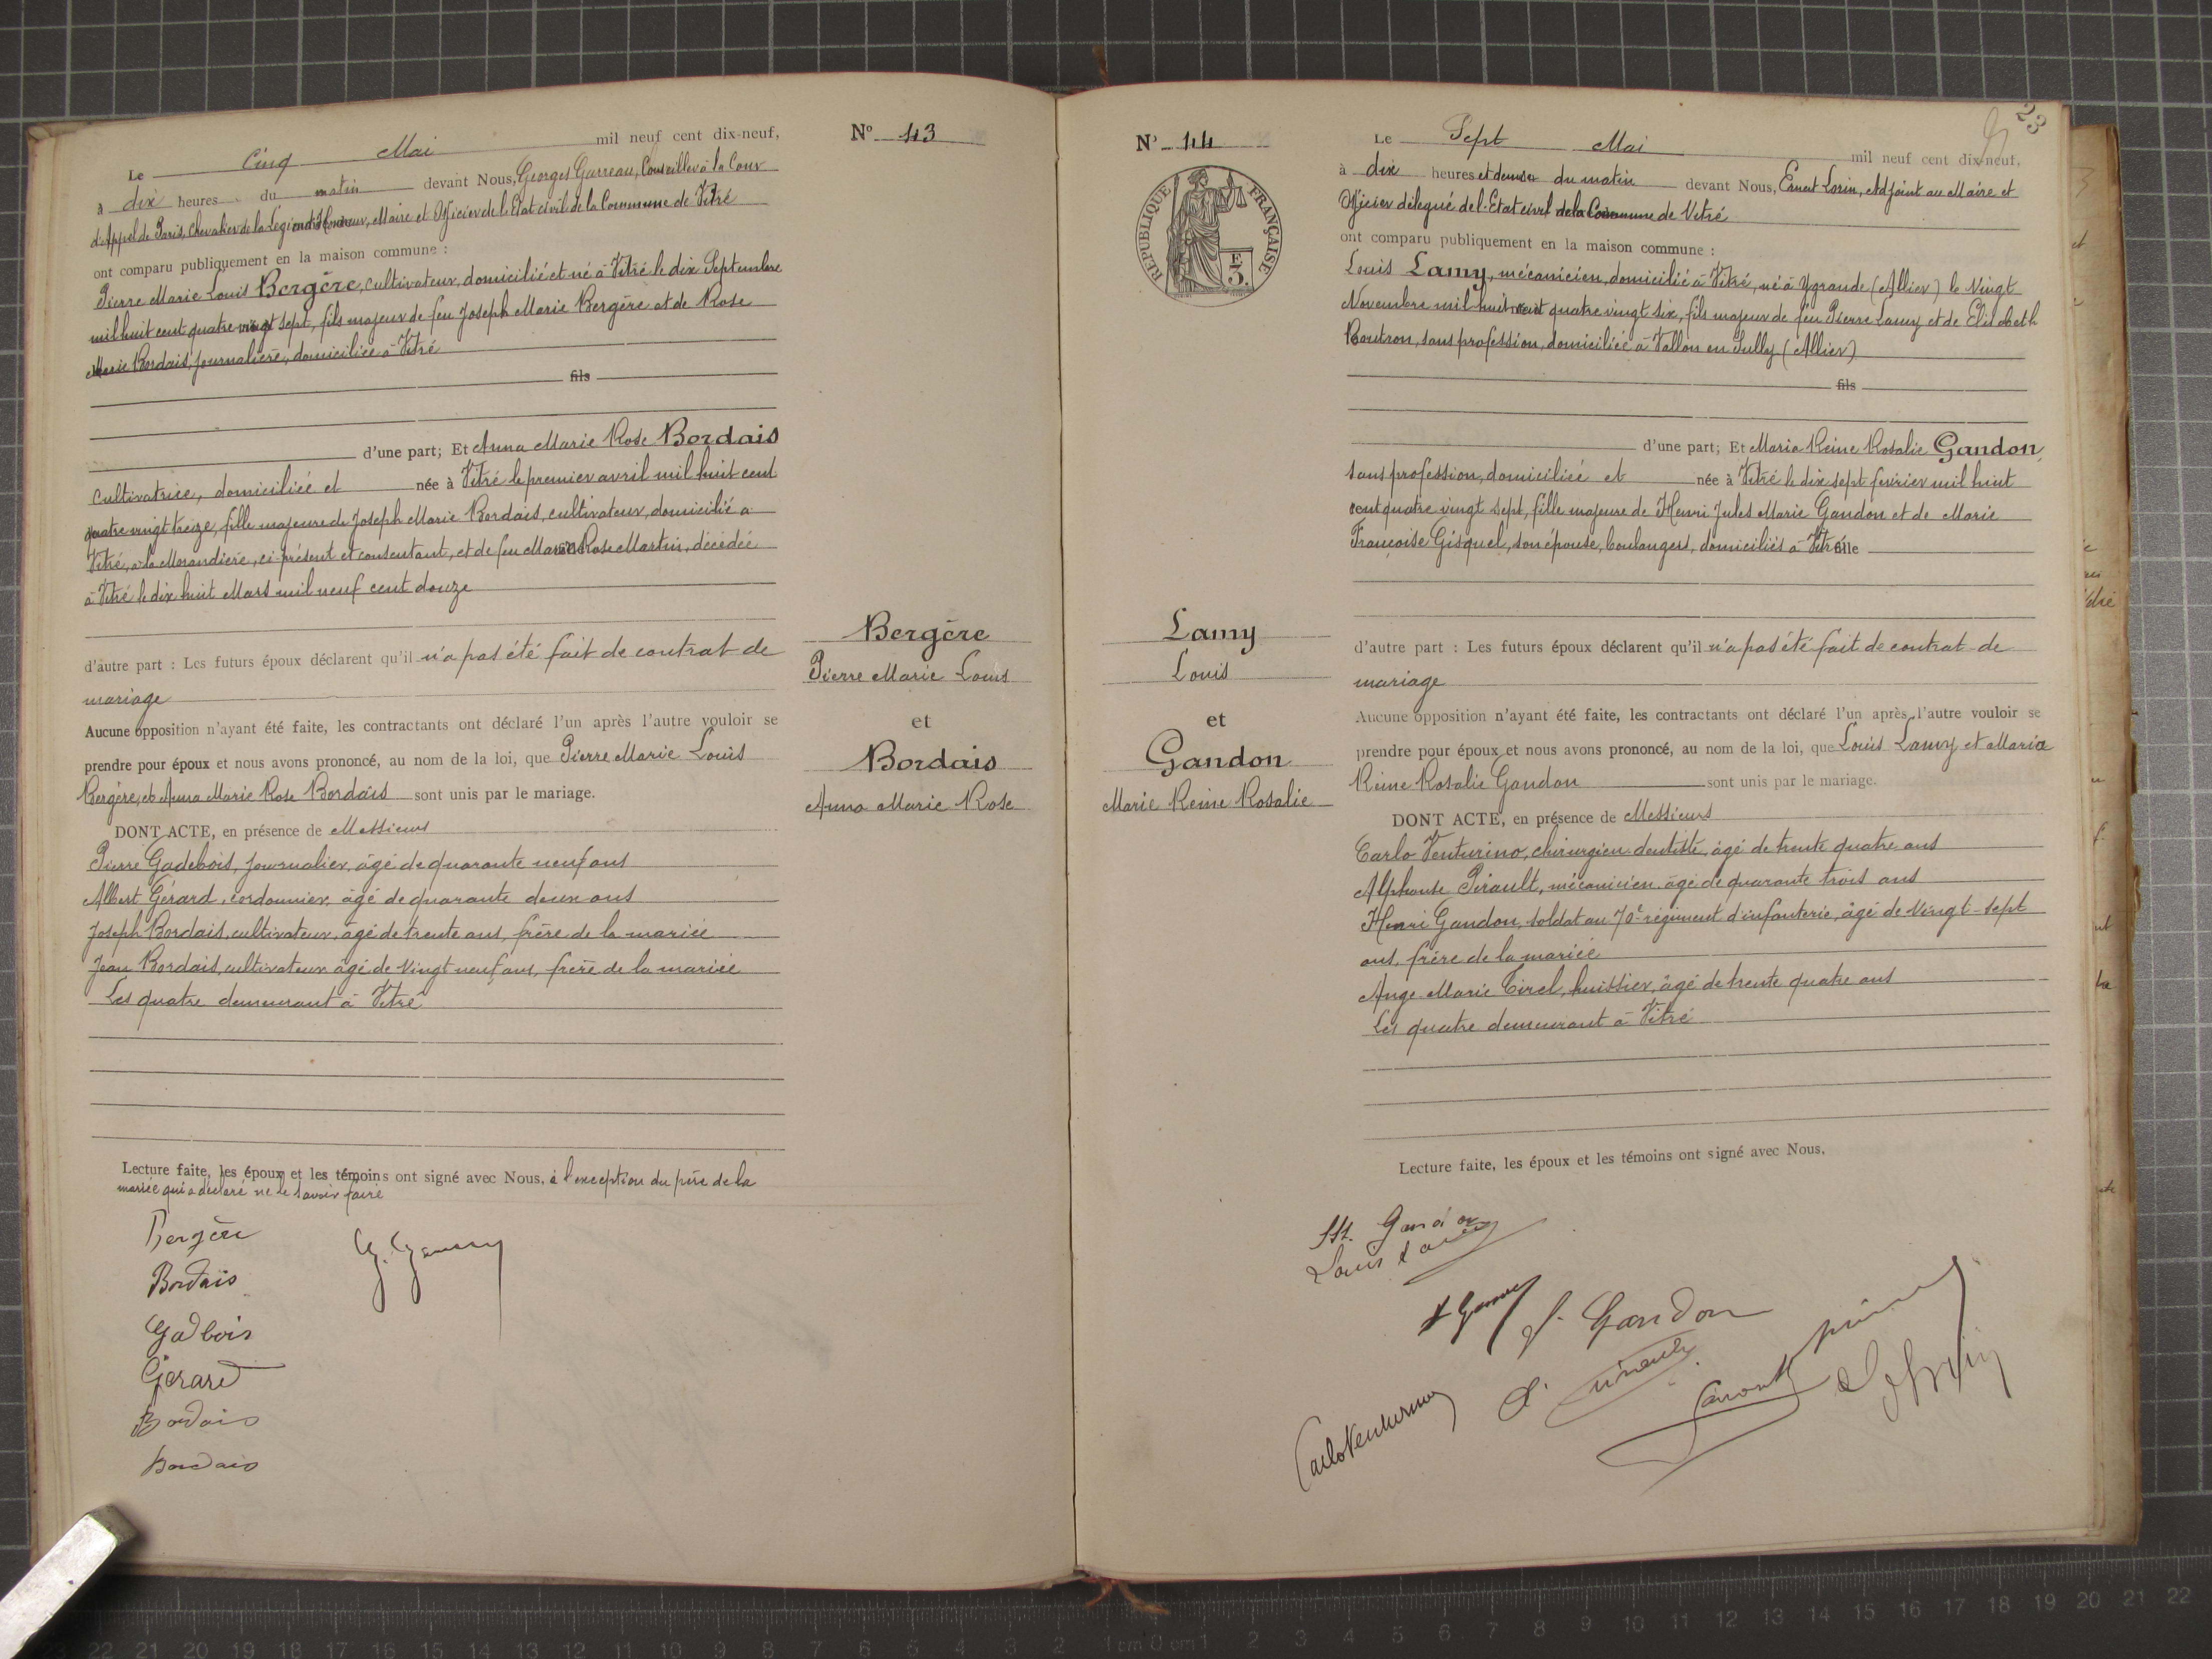 Le Cinq Mai mil neuf cent dix-neuf,
à dix heures du matin devant Nous, Georges Garreau, Conseiller à la Cour
d'Appel de Paris, Chevalier de la Légion d'Honneur, Maire et Officier de l'Etat civil de la Commune de Vitré
ont comparu publiquement en la maison commune :
Pierre Marie Louis Bergère, cultivateur, domicilié et né à Vitré le dix Septembre
mil huit cent quatre vingt sept, fils majeur de feu Joseph Marie Bergère et de Rose
Marie Bordais, journalière, domiciliée à Vitré
fils
d'une part; Et Anna Marie Rose Bordais
cultivatrice, domiciliée et née à Vitré le premier avril mil huit cent
quatre vingt treize, fille majeure de Joseph Marie Bordais, cultivateur, domicilié à
Vitré, à la Morandière, ci-présent et consentant, et de feu Marie Rose Martin, décédée
à Vitré le dix huit Mars mil neuf cent douze
d'autre part : Les futurs époux déclarent qu'il n'a pas été fait de contrat de
mariage
Aucune opposition n'ayant été faite, les contractants ont déclaré l'un après l'autre vouloir se
prendre pour époux et nous avons prononcé, au nom de la loi, que Pierre Marie Louis
Bergère, et Anna Marie Rose Bordais sont unis par le mariage.
DONT ACTE, en présence de Messieurs
Pierre Gadebois, journalier, âgé de quarante neuf ans
Albert Gérard, cordonnier, âgé de quarante deux ans
Joseph Bordais, cultivateur, âgé de trente ans, frère de la mariée
Jean Bordais, cultivateur âgé de vingt neuf ans, frère de la mariée
Les quatre demeurant à Vitré
Lecture faite, les époux et les témoins ont signé avec Nous, à l'exception du père de la
mariée qui a déclaré ne le savoir faire
Bergère
Bordais
Gadbois
Gérard
Bordais
Bordais
N° 43
Bergère
Pierre Marie Louis
et
Bordais
Anna Marie Rose
N° 44
RÉPUBLIQUE FRANÇAISE
E
3.
Lamy
Louis
et
Gandon
Marie Reine Rosalie
23
Le Sept Mai mil neuf cent dix-neuf,
à dix heures et demie du matin devant Nous, Ernest Lorin, Adjoint au Maire et
Officier délégué de l'Etat civil de la Commune de Vitré
ont comparu publiquement en la maison commune :
Louis Lamy, mécanicien, domicilié à Vitré, né à Ygrande (Allier) le Vingt
Novembre mil huit cent quatre vingt six, fils majeur de feu Pierre Lamy et de Elisabeth
Boutron, sans profession, domiciliée à Vallon en Sully (Allier)
fils
d'une part; Et Maria Reine Rosalie Gandon,
sans profession, domiciliée et née à Vitré le dix sept février mil huit
cent quatre vingt sept, fille majeure de Henri Jules Marie Gandon et de Marie
Francoise Gisquel, son épouse, boulangers, domiciliés à Vitré fille
d'autre part : Les futurs époux déclarent qu'il n'a pas été fait de contrat de
mariage
Aucune opposition n'ayant été faite, les contractants ont déclaré l'un après l'autre vouloir se
prendre pour époux et nous avons prononcé, au nom de la loi, que Louis Lamy et Maria
Reine Rosalie Gandon sont unis par le mariage.
DONT ACTE, en présence de Messieurs
Carlo Venturino, chirurgien dentiste, âgé de trente quatre ans
Alphonse Pérault, mécanicien, âgé de quarante trois ans
Henri Gandon, soldat au 70e régiment d'infanterie, âgé de Vingt-sept
ans, frère de la mariée
Ange Marie Tirel, huissier, âgé de trente quatre ans
Les quatre demeurant à Vitré
Lecture faite, les époux et les témoins ont signé avec Nous,
Gandon
Louis Lamy
Gandon
Carlo Venturino
22 21 20 19 18 17 16 15 14 13 12 11 10 9 8 7 6 5 4 3 2 1 cm 0 cm 1 2 3 4 5 6 7 8 9 10 11 12 13 14 15 16 17 18 19 20 21 22